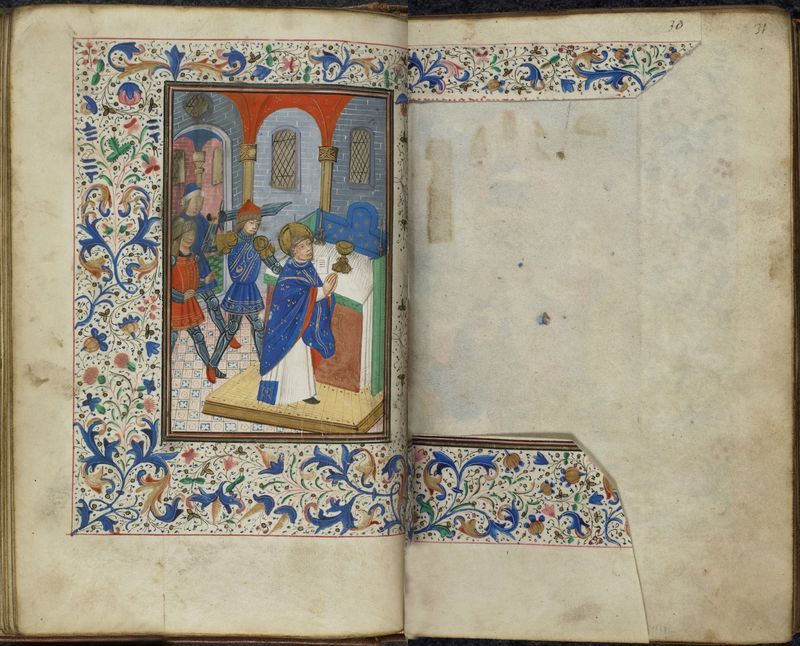 30
31